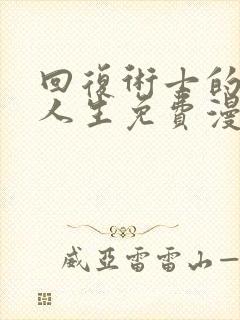 回復術士的
人生免費漫
威亞雷雷山一